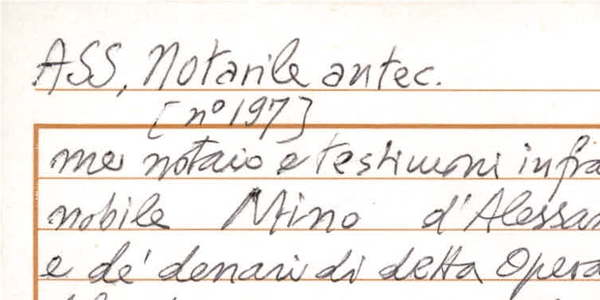 ASS, Notarile antec.
[n° 197]
me notaio e testimoni infra
nobile Mino d'Alessan
e de' denari di detta Opera